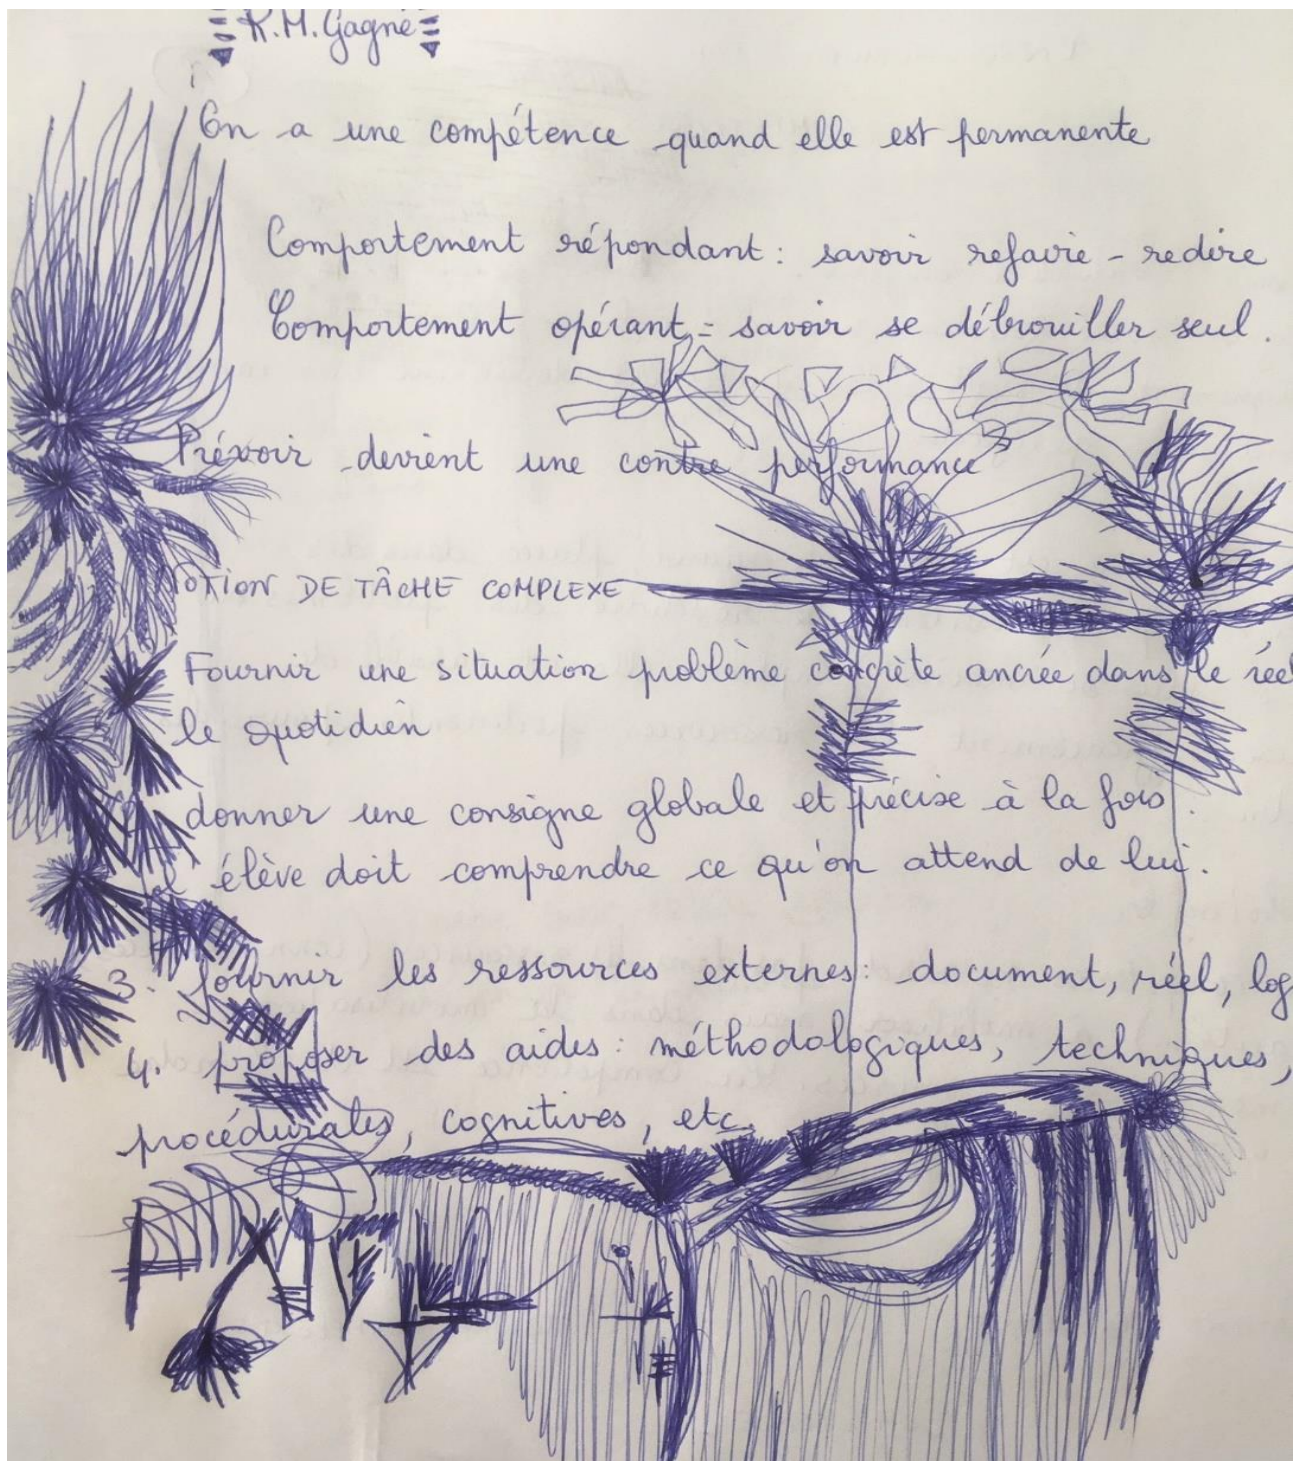 R.M. Gagné
On a une compétence quand elle est permanente
Comportement répondant : savoir refaire - redire
Comportement opérant = savoir se débrouiller seul.
Prévoir devient une contre performance
NOTION DE TÂCHE COMPLEXE
Fournir une situation problème concrète ancrée dans le réel
le quotidien
donner une consigne globale et précise à la fois.
L'élève doit comprendre ce qu'on attend de lui.
3. fournir les ressources externes : document, réel, log
4. proposer des aides : méthodologiques, techniques,
procédurales, cognitives, etc.